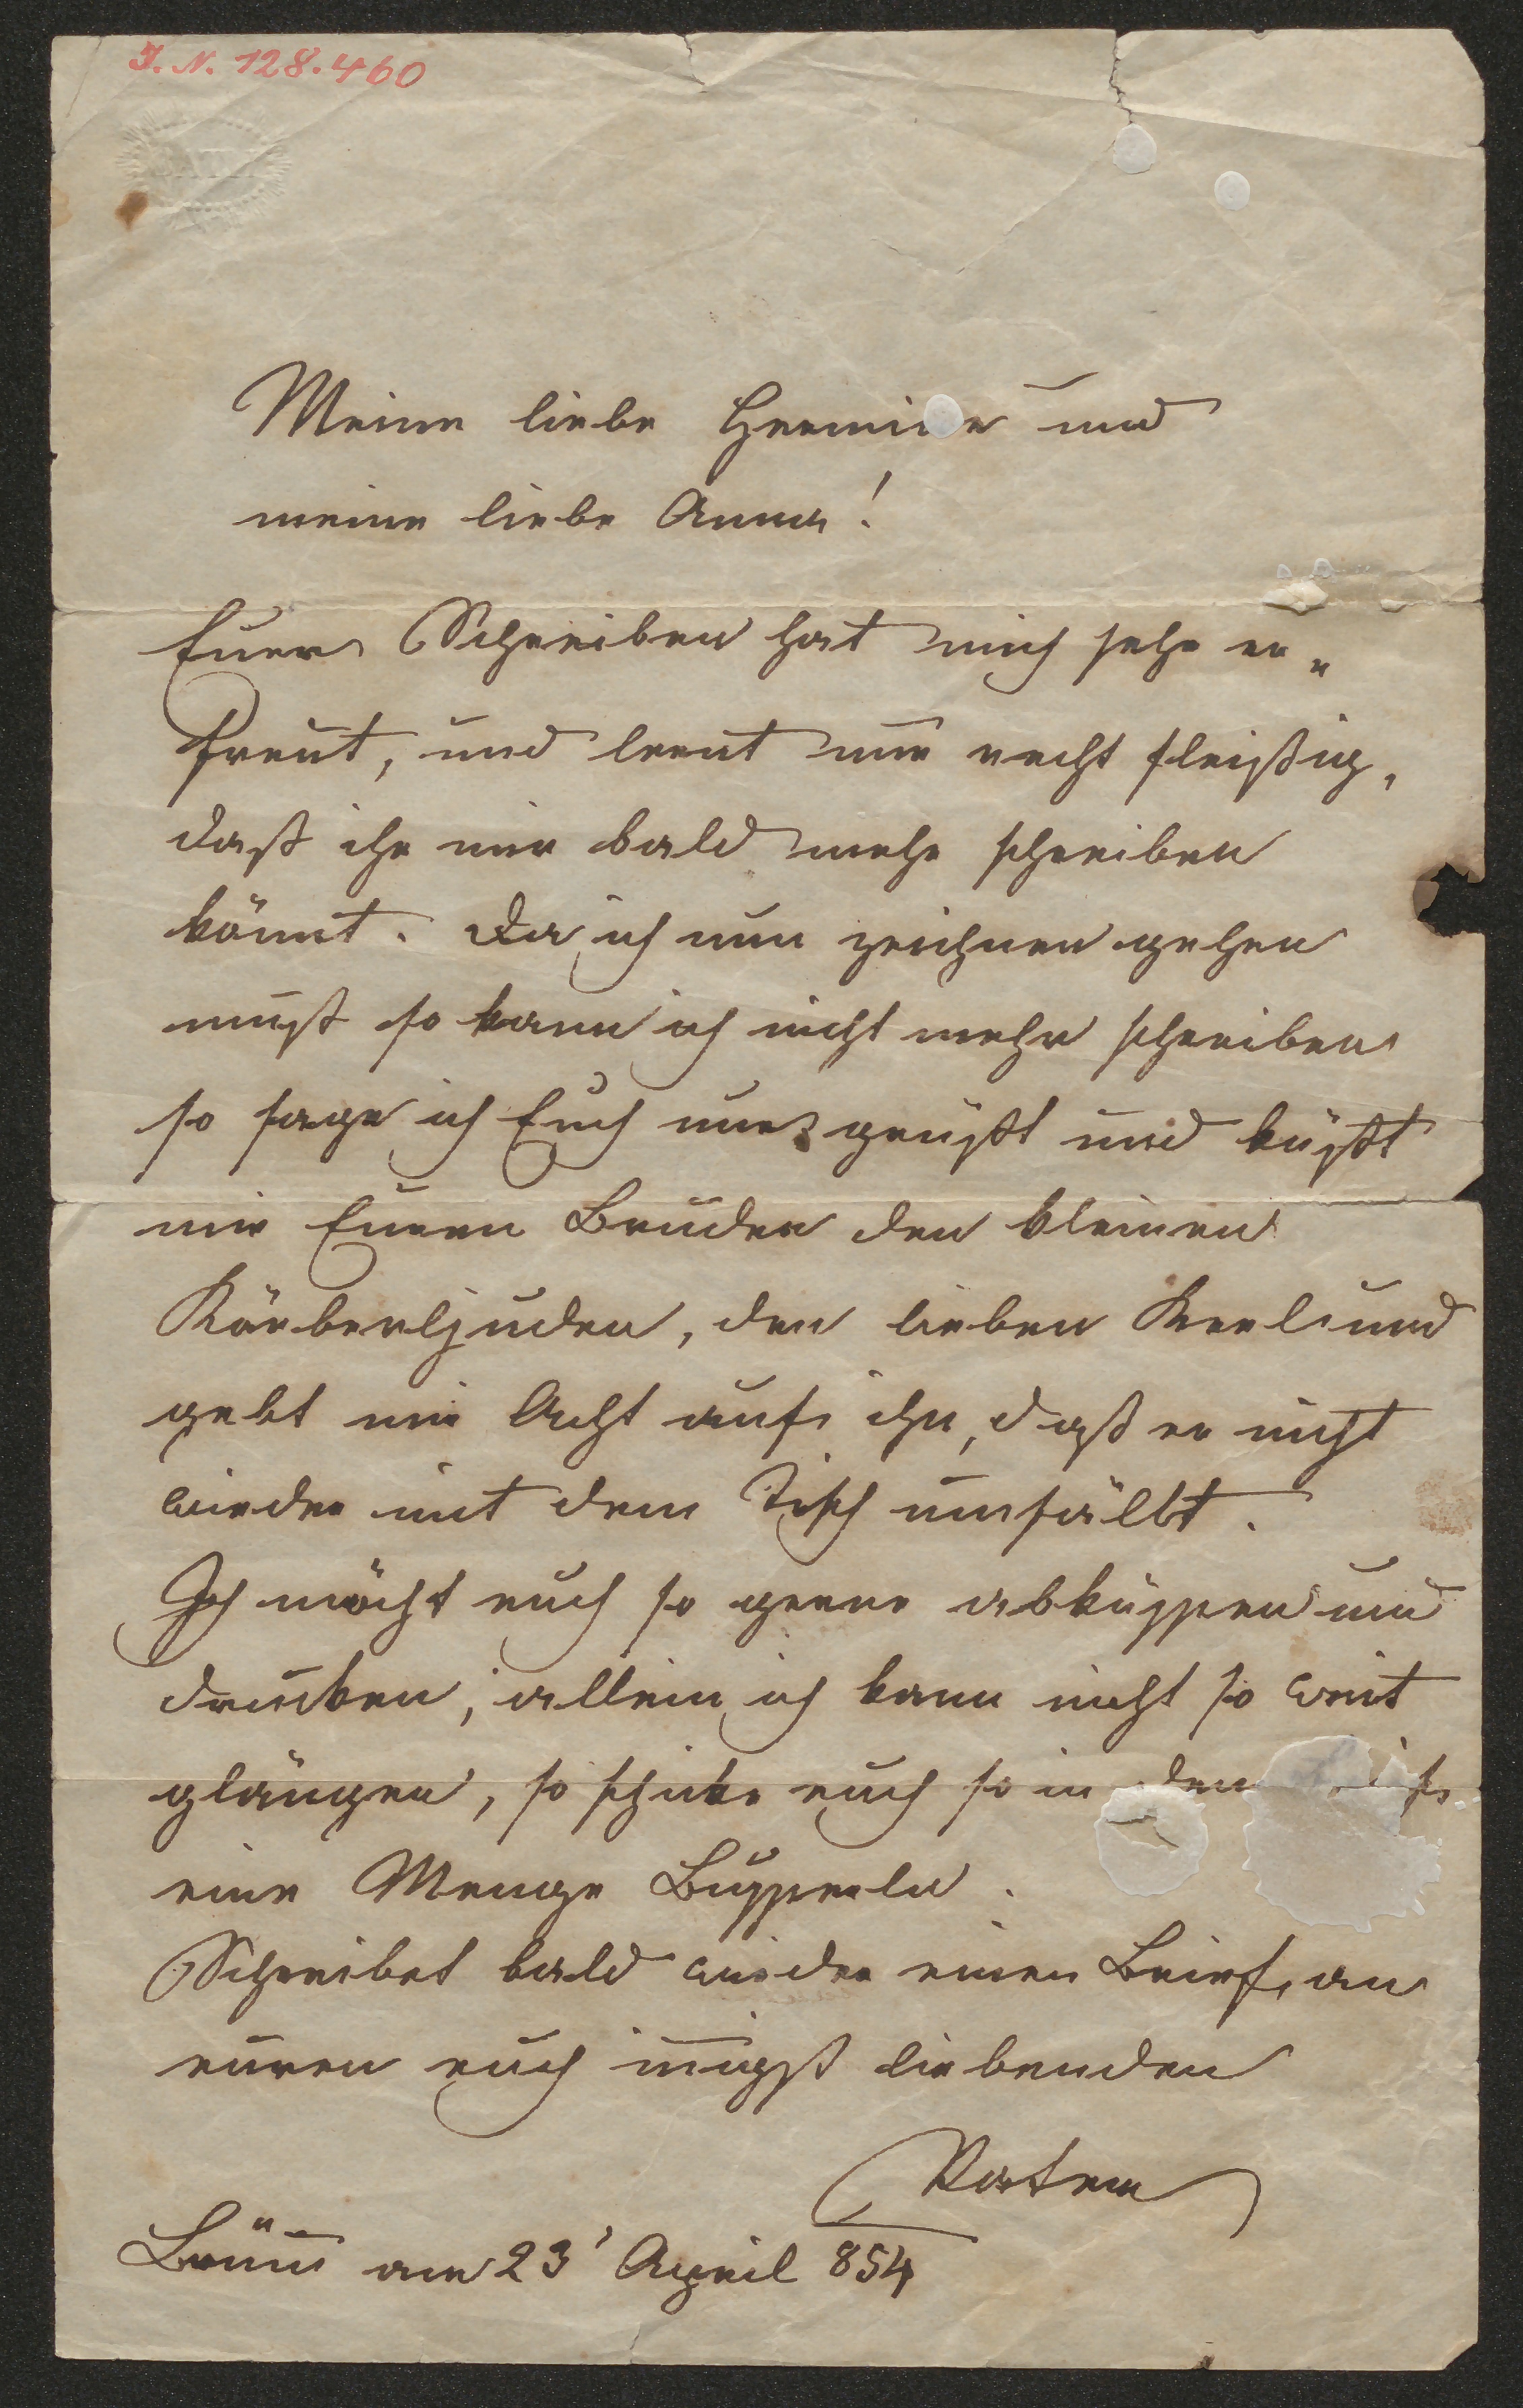 I. N. 128.460
Meine liebe Hermine und
meine liebe Anna!
Euer Schreiben hat mich sehr er„
freut, und lernt nur recht fleißig,
daß ihr mir bald mehr schreiben
könnt. Da ich nun zeichnen gehen
muß so kann ich nicht mehr schreiben
so sage ich Euch nur grüßt und küßt
mir Euren Bruder den kleinen
den lieben Kerl und
gebt mir Acht auf ihn, daß er nicht
wieder mit dem Tisch umfällt.
Ich möcht euch so gerne abküssen und
drucken, allein ich kann nicht so weit
glangen, so schicke euch so in dem
eine Menge Busserln.
Schreibet bald wieder einen Brief an
euren euch innigst liebenden
Vater
Brünn am 23' April 854